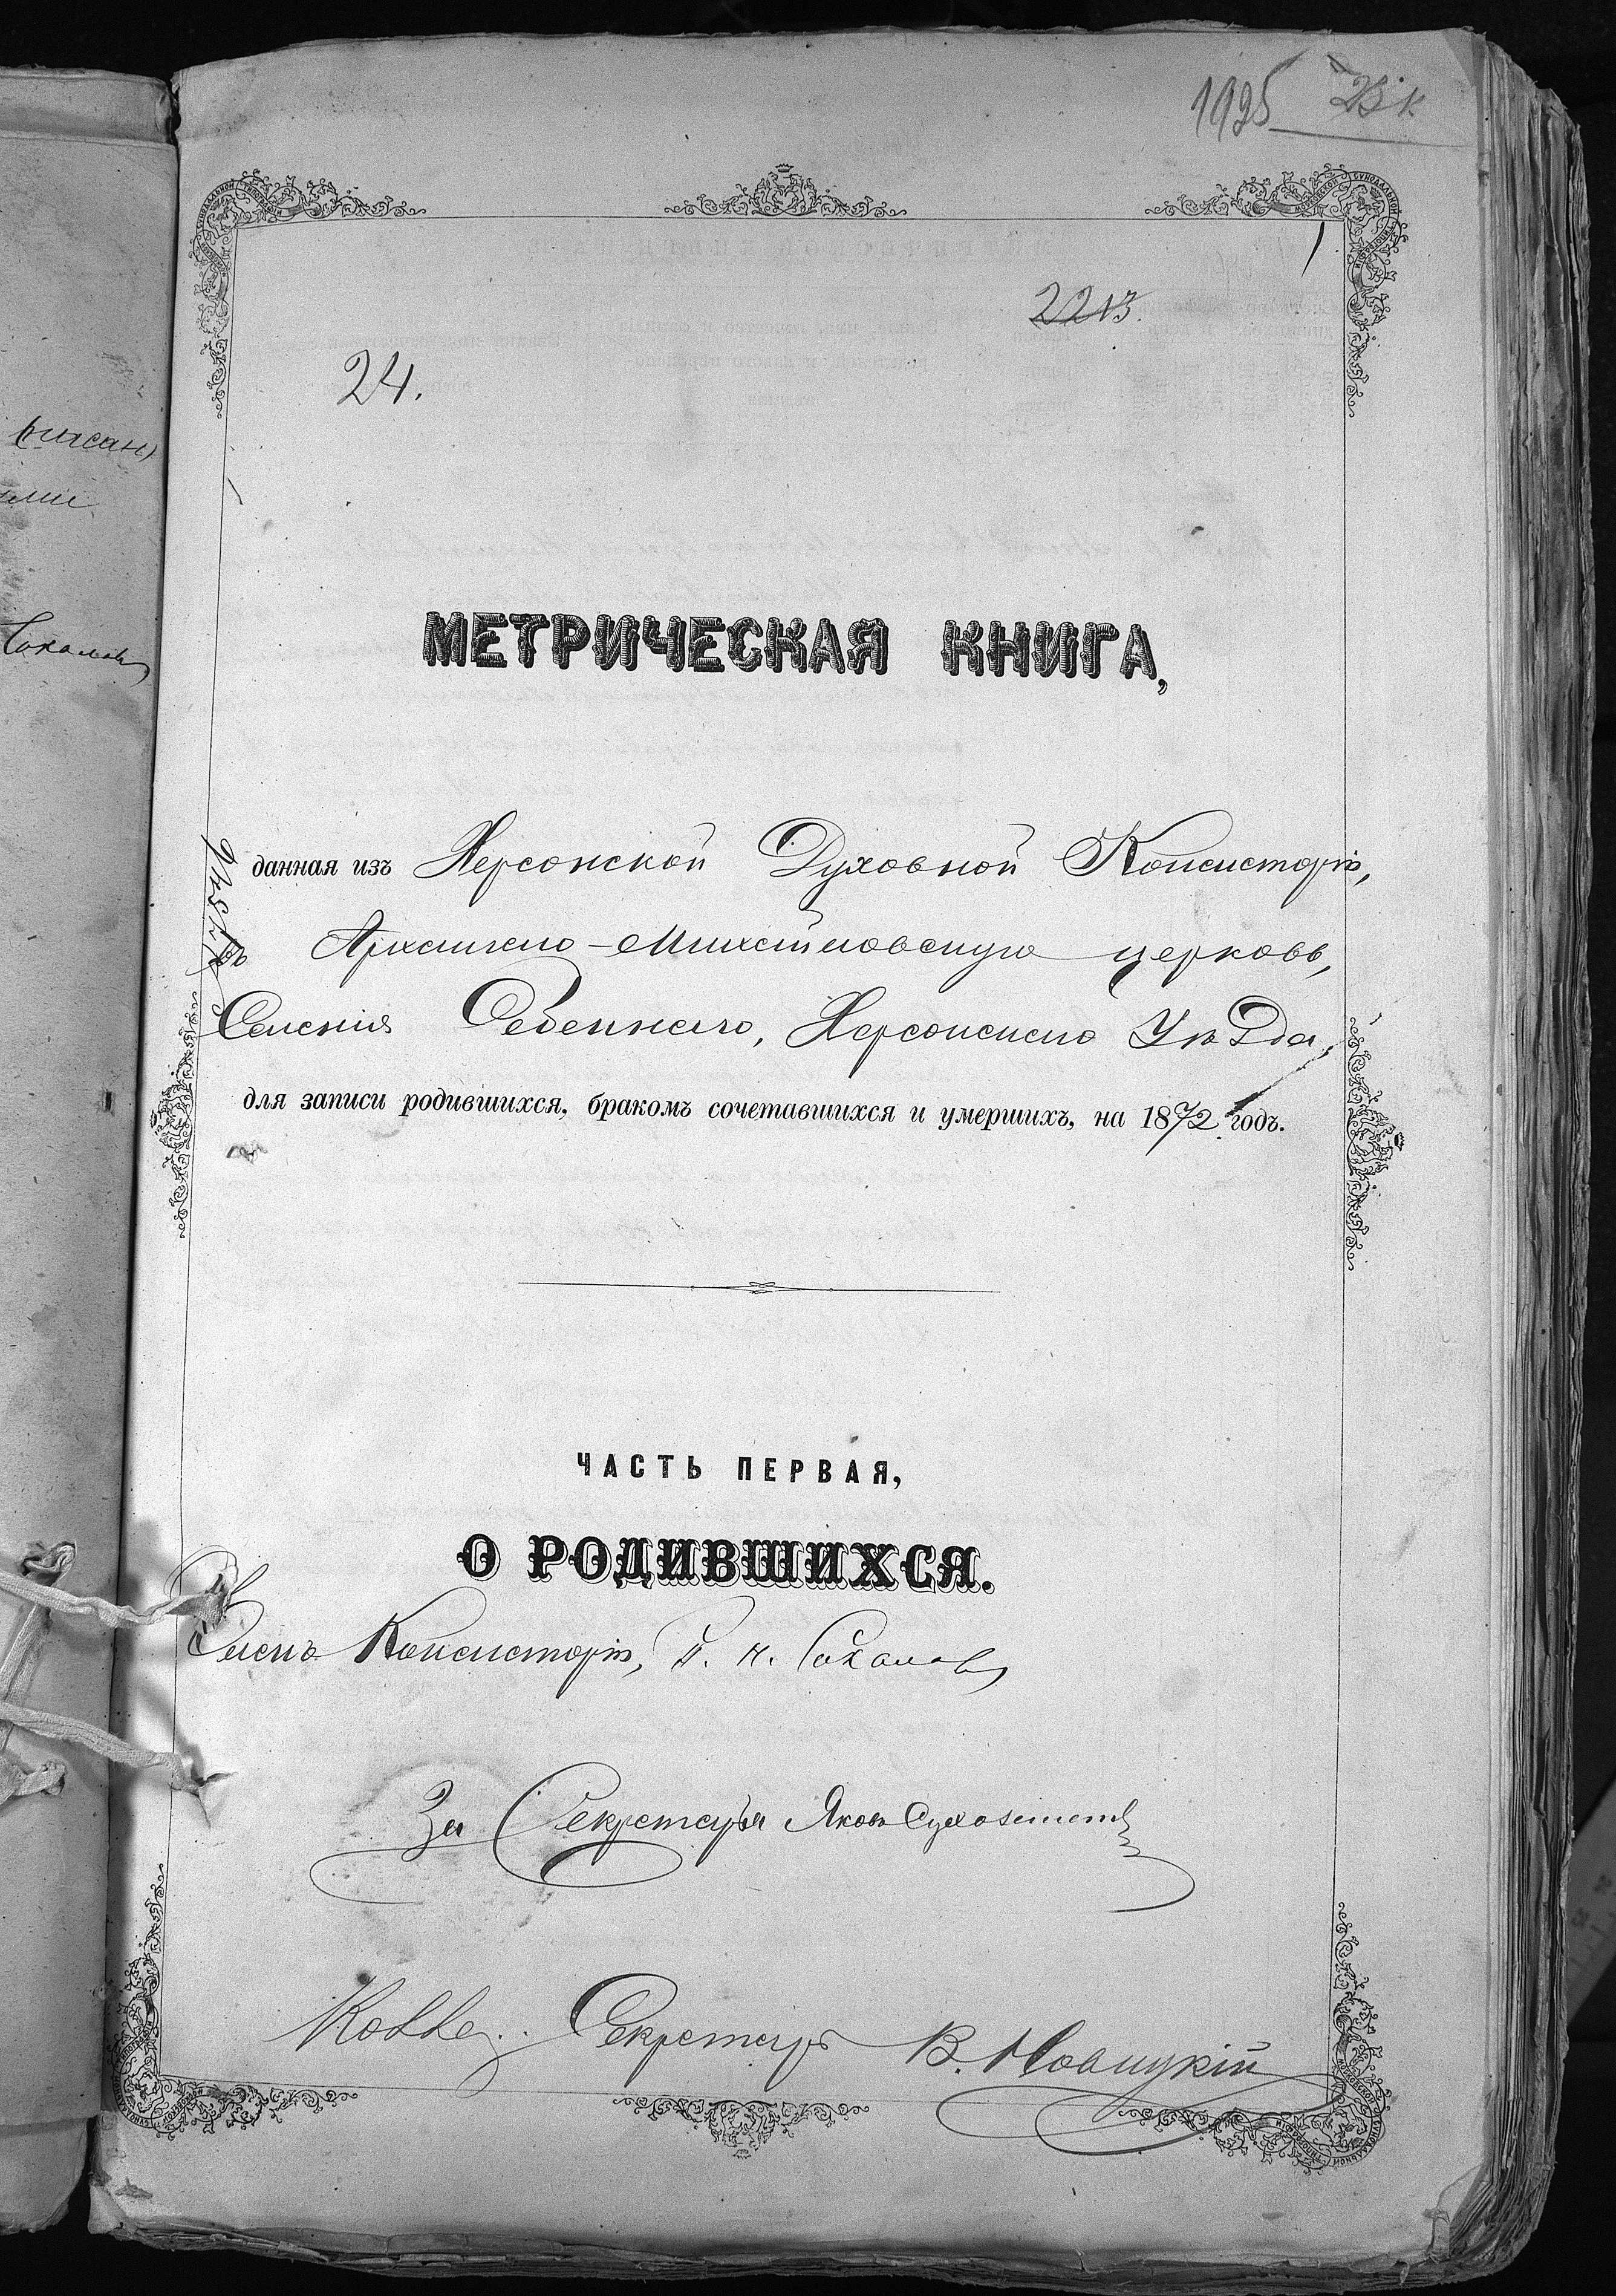 1925
1
2213.
24.
МЕТРИЧЕСКАЯ КНИГА,
данная изъ Херсонской Духовной Консисторіи,
въ Архангело-Михайловскую церковь,
Селенія Себеннаго, Херсонскаго Уѣзда,
для записи родившихся, бракомъ сочетавшихся и умершихъ, на 1872 годъ.
ЧАСТЬ ПЕРВАЯ,
О РОДИВШИХСЯ.
Членъ Консисторіи,
За Секретаря Яковъ
Секретарь В. Новицкій